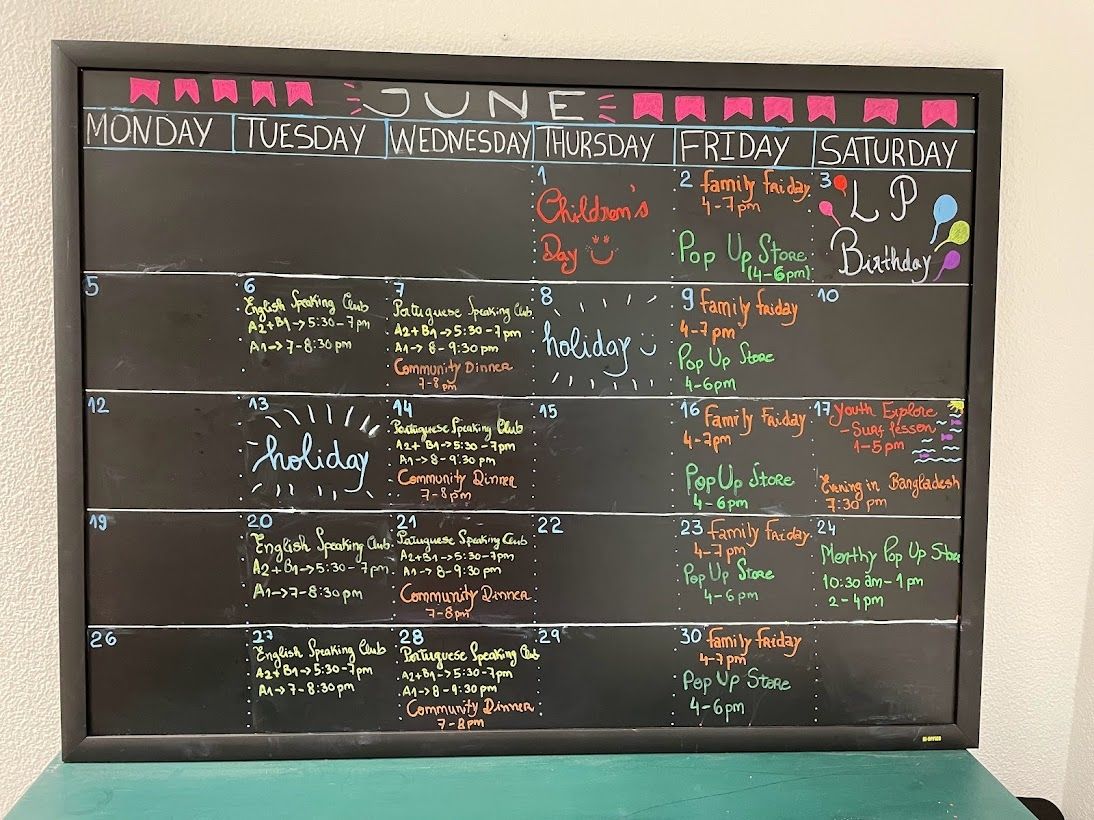 JUNE
MONDAY TUESDAY WEDNESDAY THURSDAY FRIDAY SATURDAY
1
Children's
Day
2 Family Friday
4-7pm
Pop Up Store
(4-6pm)
3
LP
Birthday
5
6
English Speaking Club
A2+B1→5:30-7pm
A1→7-8:30pm
7
Portuguese Speaking Club
A2+B1→5:30-7pm
A1→8-9:30pm
Community Dinner
7-8pm
8
holiday
9 Family Friday
4-7pm
Pop Up Store
4-6pm
10
12
13
holiday
14
Portuguese Speaking Club
A2+B1→5:30-7pm
A1→8-9:30pm
Community Dinner
7-8pm
15
16 Family Friday
4-7pm
Pop Up Store
4-6pm
17 Youth Explore
-Surf lesson
1-5pm
Evening in Bangladesh
7:30 pm
19
20
English Speaking Club
A2+B1→5:30-7pm
A1→7-8:30pm
21
Portuguese Speaking Club
A2+B1→5:30-7pm
A1→8-9:30pm
Community Dinner
7-8pm
22
23 Family Friday
4-7pm
Pop Up Store
4-6pm
24
Monthy Pop Up Store
10:30 am-1pm
2-4pm
26
27
English Speaking Club
A2+B1→5:30-7pm
A1→7-8:30pm
28
Portuguese Speaking Club
A2+B1→5:30-7pm
A1→8-9:30pm
Community Dinner
7-8pm
29
30 Family Friday
4-7pm
Pop Up Store
4-6pm